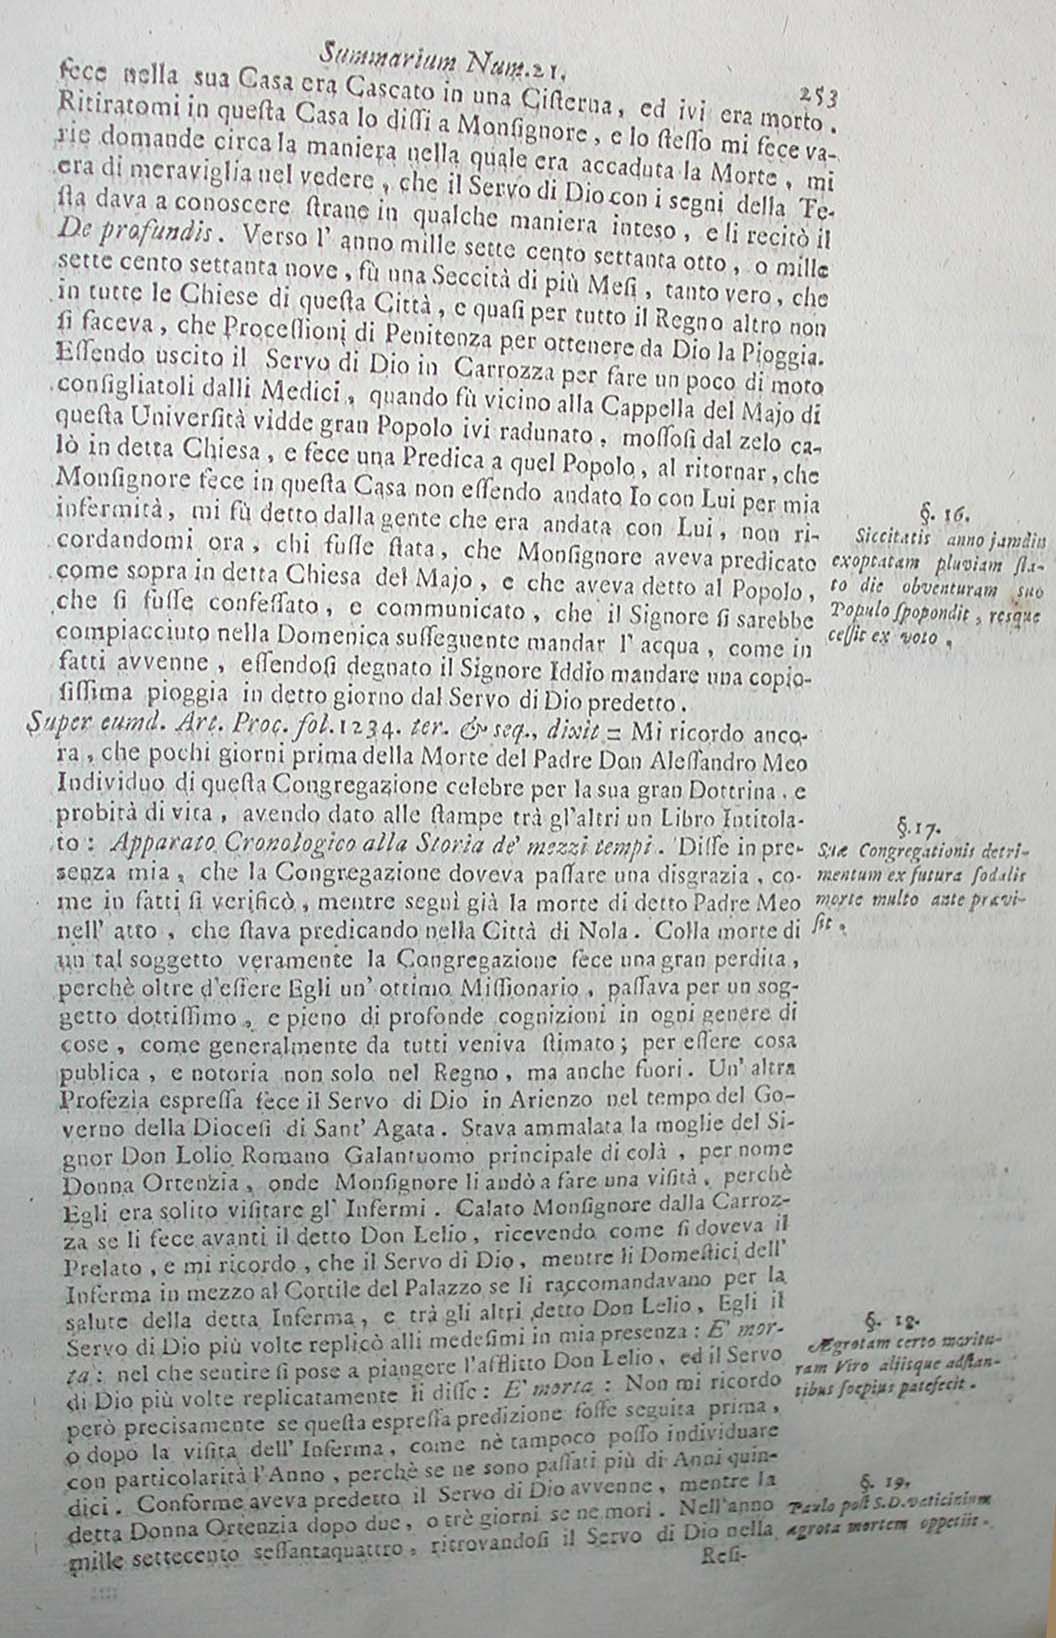 Summarium Num.21.
253
fece nella sua Casa era Cascato in una Ciſterna, ed ivi era morto.
Ritiratomi in queſta Casa lo diſſi a Monſignore, e lo ſteſſo mi fece va-
rie domande circa la maniera nella quale era accaduta la Morte, mi
era di meraviglia nel vedere, che il Servo di Dio con i segni della Te-
ſta dava a conoscere ſtrane in qualche maniera inteso, e li recitò il
De profundis. Verso l' anno mille sette cento settanta otto, o mille
sette cento settanta nove, fù una Seccità di più Meſi, tanto vero, che
in tutte le Chiese di queſta Città, e quaſi per tutto il Regno altro non
ſi faceva, che Proceſſioni di Penitenza per ottenere da Dio la Pioggia.
Eſſendo uscito il Servo di Dio in Carrozza per fare un poco di moto
conſigliatoli dalli Medici, quando fù vicino alla Cappella del Majo di
queſta Univerſità vidde gran Popolo ivi radunato, moſſoſi dal zelo ca-
lò in detta Chiesa, e fece una Predica a quel Popolo, al ritornar, che
Monſignore fece in queſta Casa non eſſendo andato Io con Lui per mia
infermità, mi fù detto dalla gente che era andata con Lui, non ri-
cordandomi ora, chi fuſſe ſtata, che Monſignore aveva predicato
come sopra in detta Chiesa del Majo, e che aveva detto al Popolo,
che ſi fuſſe confeſſato, e communicato, che il Signore ſi sarebbe
compiacciuto nella Domenica suſſeguente mandar l' acqua, come in
fatti avvenne, eſſendoſi degnato il Signore Iddio mandare una copio-
ſiſſima pioggia in detto giorno dal Servo di Dio predetto.
§. 16.
Siccitatis anno jamdiu
exoptatam pluviam ſta-
to die obventuram suo
Populo ſpopondit, resque
ceſſit ex voto.
Super eumd. Art. Proc. fol.1234. ter. & seq., dixit = Mi ricordo anco-
ra, che pochi giorni prima della Morte del Padre Don Aleſſandro Meo
Individuo di queſta Congregazione celebre per la sua gran Dottrina, e
probità di vita, avendo dato alle ſtampe trà gl'altri un Libro Intitola-
to: Apparato Cronologico alla Storia de' mezzi tempi. Diſſe in pre-
senza mia, che la Congregazione doveva paſſare una disgrazia, co-
me in fatti ſi verificò, mentre seguì già la morte di detto Padre Meo
nell' atto, che ſtava predicando nella Città di Nola. Colla morte di
un tal soggetto veramente la Congregazione fece una gran perdita,
perchè oltre d'eſſere Egli un' ottimo Miſſionario, paſſava per un sog-
getto dottiſſimo, e pieno di profonde cognizioni in ogni genere di
cose, come generalmente da tutti veniva ſtimato; per eſſere cosa
publica, e notoria non solo nel Regno, ma anche fuori. Un' altra
Profezia espreſſa fece il Servo di Dio in Arienzo nel tempo del Go-
verno della Dioceſi di Sant' Agata. Stava ammalata la moglie del Si-
gnor Don Lolio Romano Galantuomo principale di colà, per nome
Donna Ortenzia, onde Monſignore li andò a fare una viſità, perchè
Egli era solito viſitare gl' Infermi. Calato Monſignore dalla Carroz-
za se li fece avanti il detto Don Lelio, ricevendo come ſi doveva il
Prelato, e mi ricordo, che il Servo di Dio, mentre li Domeſtici dell'
Inferma in mezzo al Cortile del Palazzo se li raccomandavano per la
salute della detta Inferma, e trà gli altri detto Don Lelio, Egli il
Servo di Dio più volte replicò alli medeſimi in mia presenza: E' mor-
ta: nel che sentire ſi pose a piangere l'afflitto Don Lelio, ed il Servo
di Dio più volte replicatamente li diſſe: E' morta: Non mi ricordo
però precisamente se queſta espreſſa predizione foſſe seguita prima,
o dopo la viſita dell' Inferma, come nè tampoco poſſo individuare
con particolarità l'Anno, perchè se ne sono paſſati più di Anni quin-
dici. Conforme aveva predetto il Servo di Dio avvenne, mentre la
detta Donna Ortenzia dopo due, o trè giorni se ne morì. Nell'anno
mille settecento seſſantaquattro, ritrovandoſi il Servo di Dio nella
§.17.
Suæ Congregationis detri-
mentum ex futura ſodalis
morte multo ante prævi-
ſit.
§. 18.
Ægrotam certo moritu-
ram Viro aliisque adſtan-
tibus ſoepius patefecit.
§. 19.
Paulo poſt S.D.vaticinium
ægrota mortem oppetiit.
Reſi-